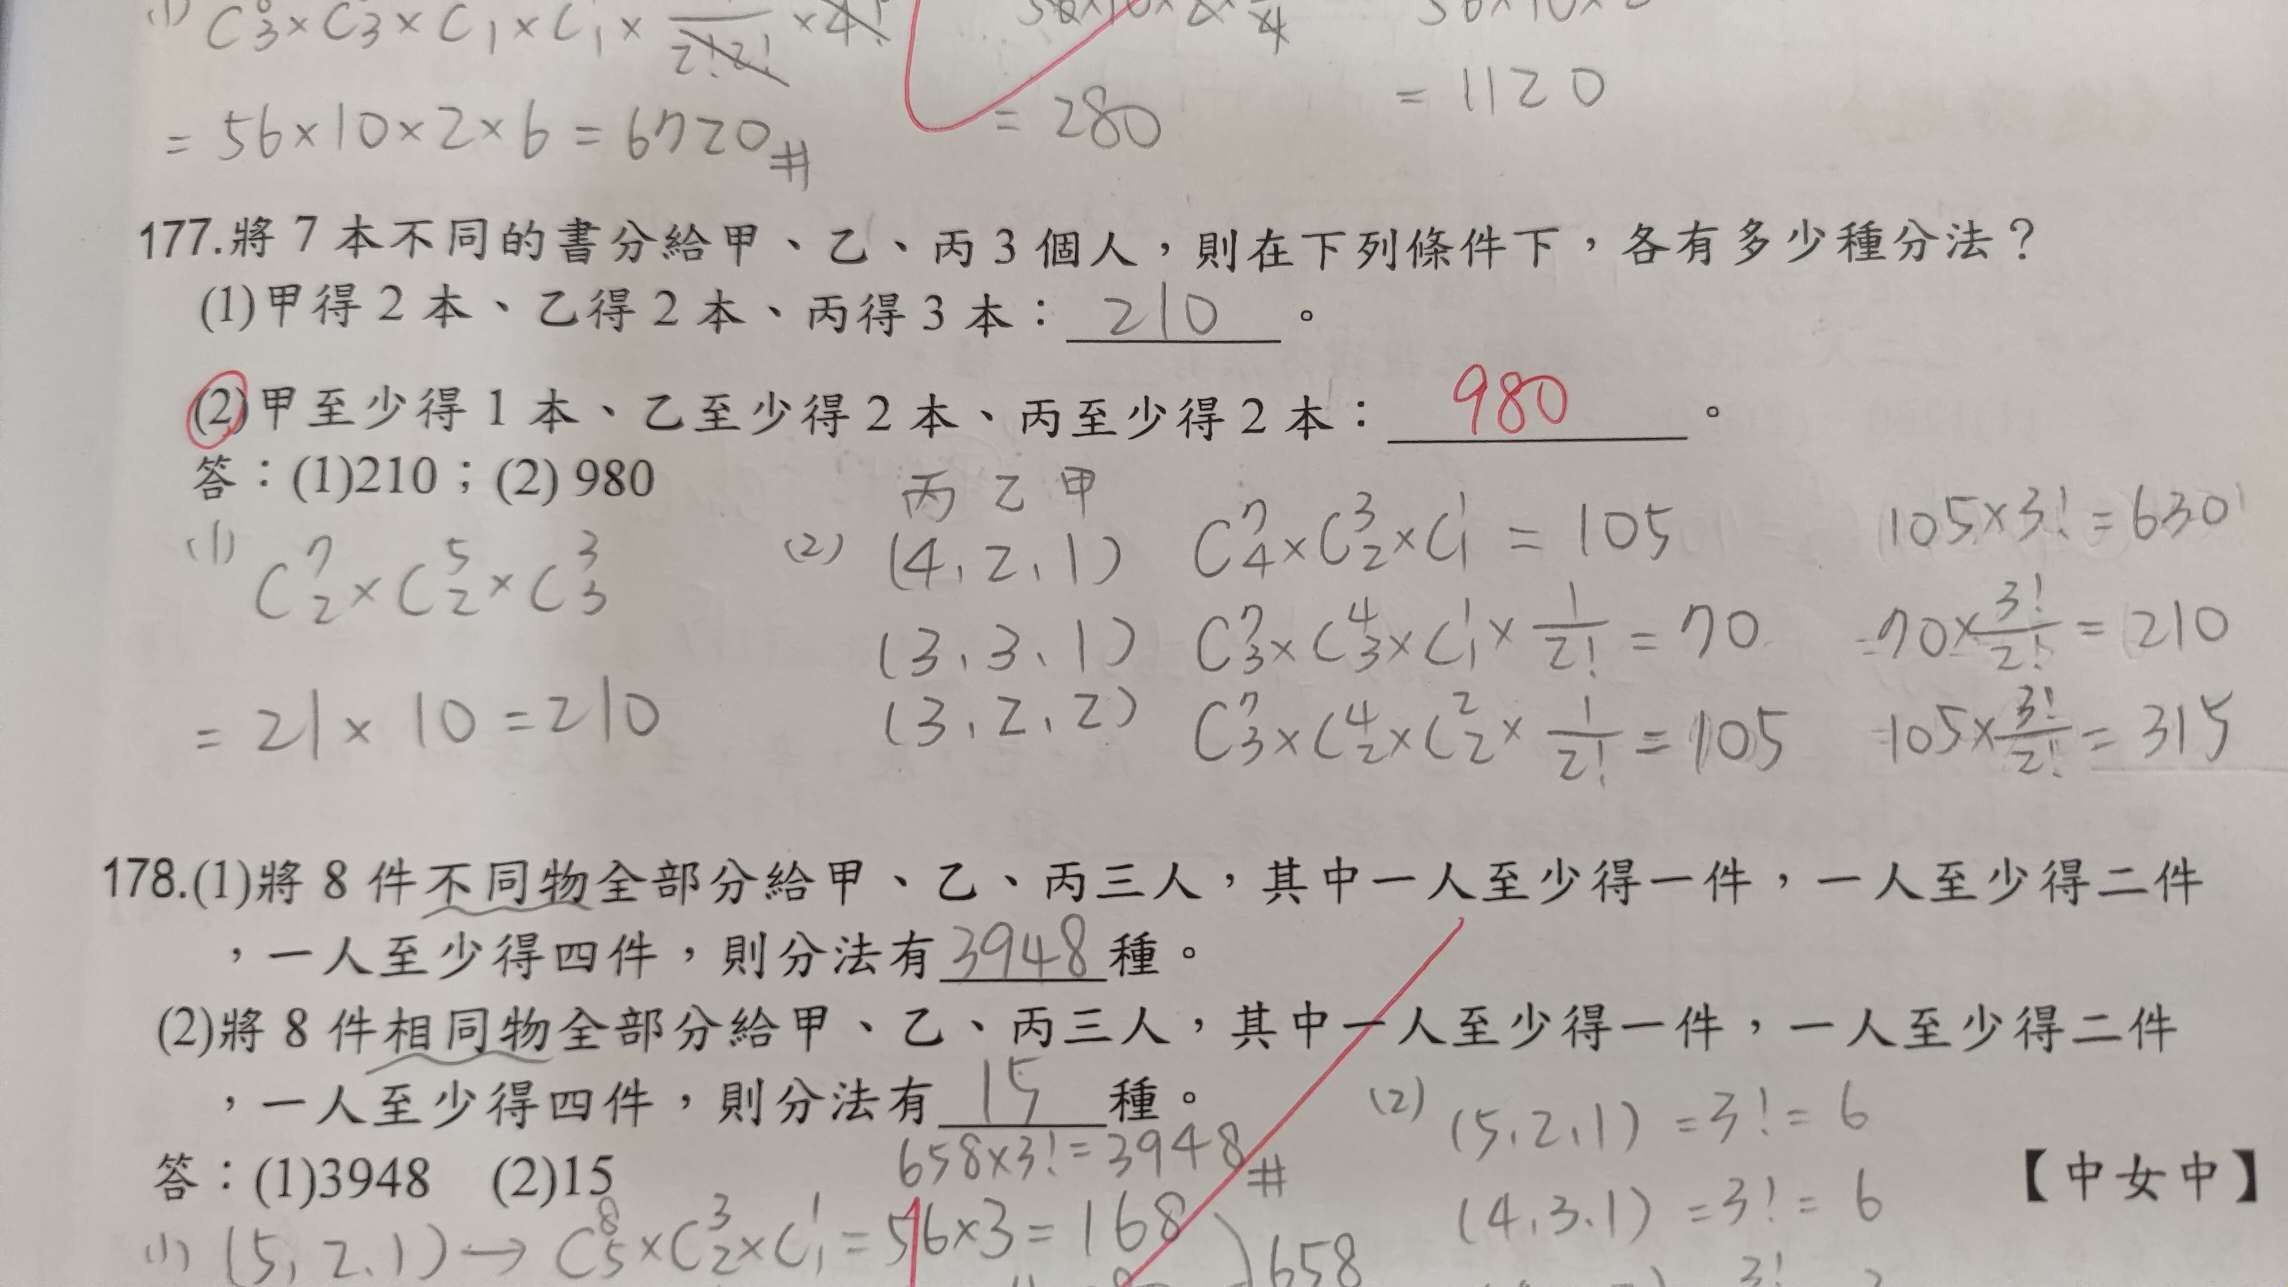 (1) C⁸₃×C⁵₃×C₁×C¹₁×1/2!2!×4!
= 56×10×2×6 = 6720#
= 280
= 1120
177.將 7 本不同的書分給甲、乙、丙 3 個人，則在下列條件下，各有多少種分法？
(1)甲得 2 本、乙得 2 本、丙得 3 本： 210 。
(2)甲至少得 1 本、乙至少得 2 本、丙至少得 2 本： 980 。
答：(1)210；(2) 980
(1) C⁷₂×C⁵₂×C³₃
= 21×10=210
丙 乙 甲
(2) (4,2,1) C⁷₄×C³₂×C¹₁ = 105 105×3! = 630
(3,3,1) C⁷₃×C⁴₃×C¹₁×1/2! = 70 70×3!/2! = 210
(3,2,2) C⁷₃×C⁴₂×C²₂×1/2! = 105 105×3!/2! = 315
178.(1)將 8 件不同物全部分給甲、乙、丙三人，其中一人至少得一件，一人至少得二件
，一人至少得四件，則分法有 3948 種。
(2)將 8 件相同物全部分給甲、乙、丙三人，其中一人至少得一件，一人至少得二件
，一人至少得四件，則分法有 15 種。
答：(1)3948 (2)15
【中女中】
658×3!=3948#
(1) (5,2,1)→C⁸₅×C³₂×C¹₁=56×3=168
658
(2) (5,2,1) =3!=6
(4,3,1) =3!=6